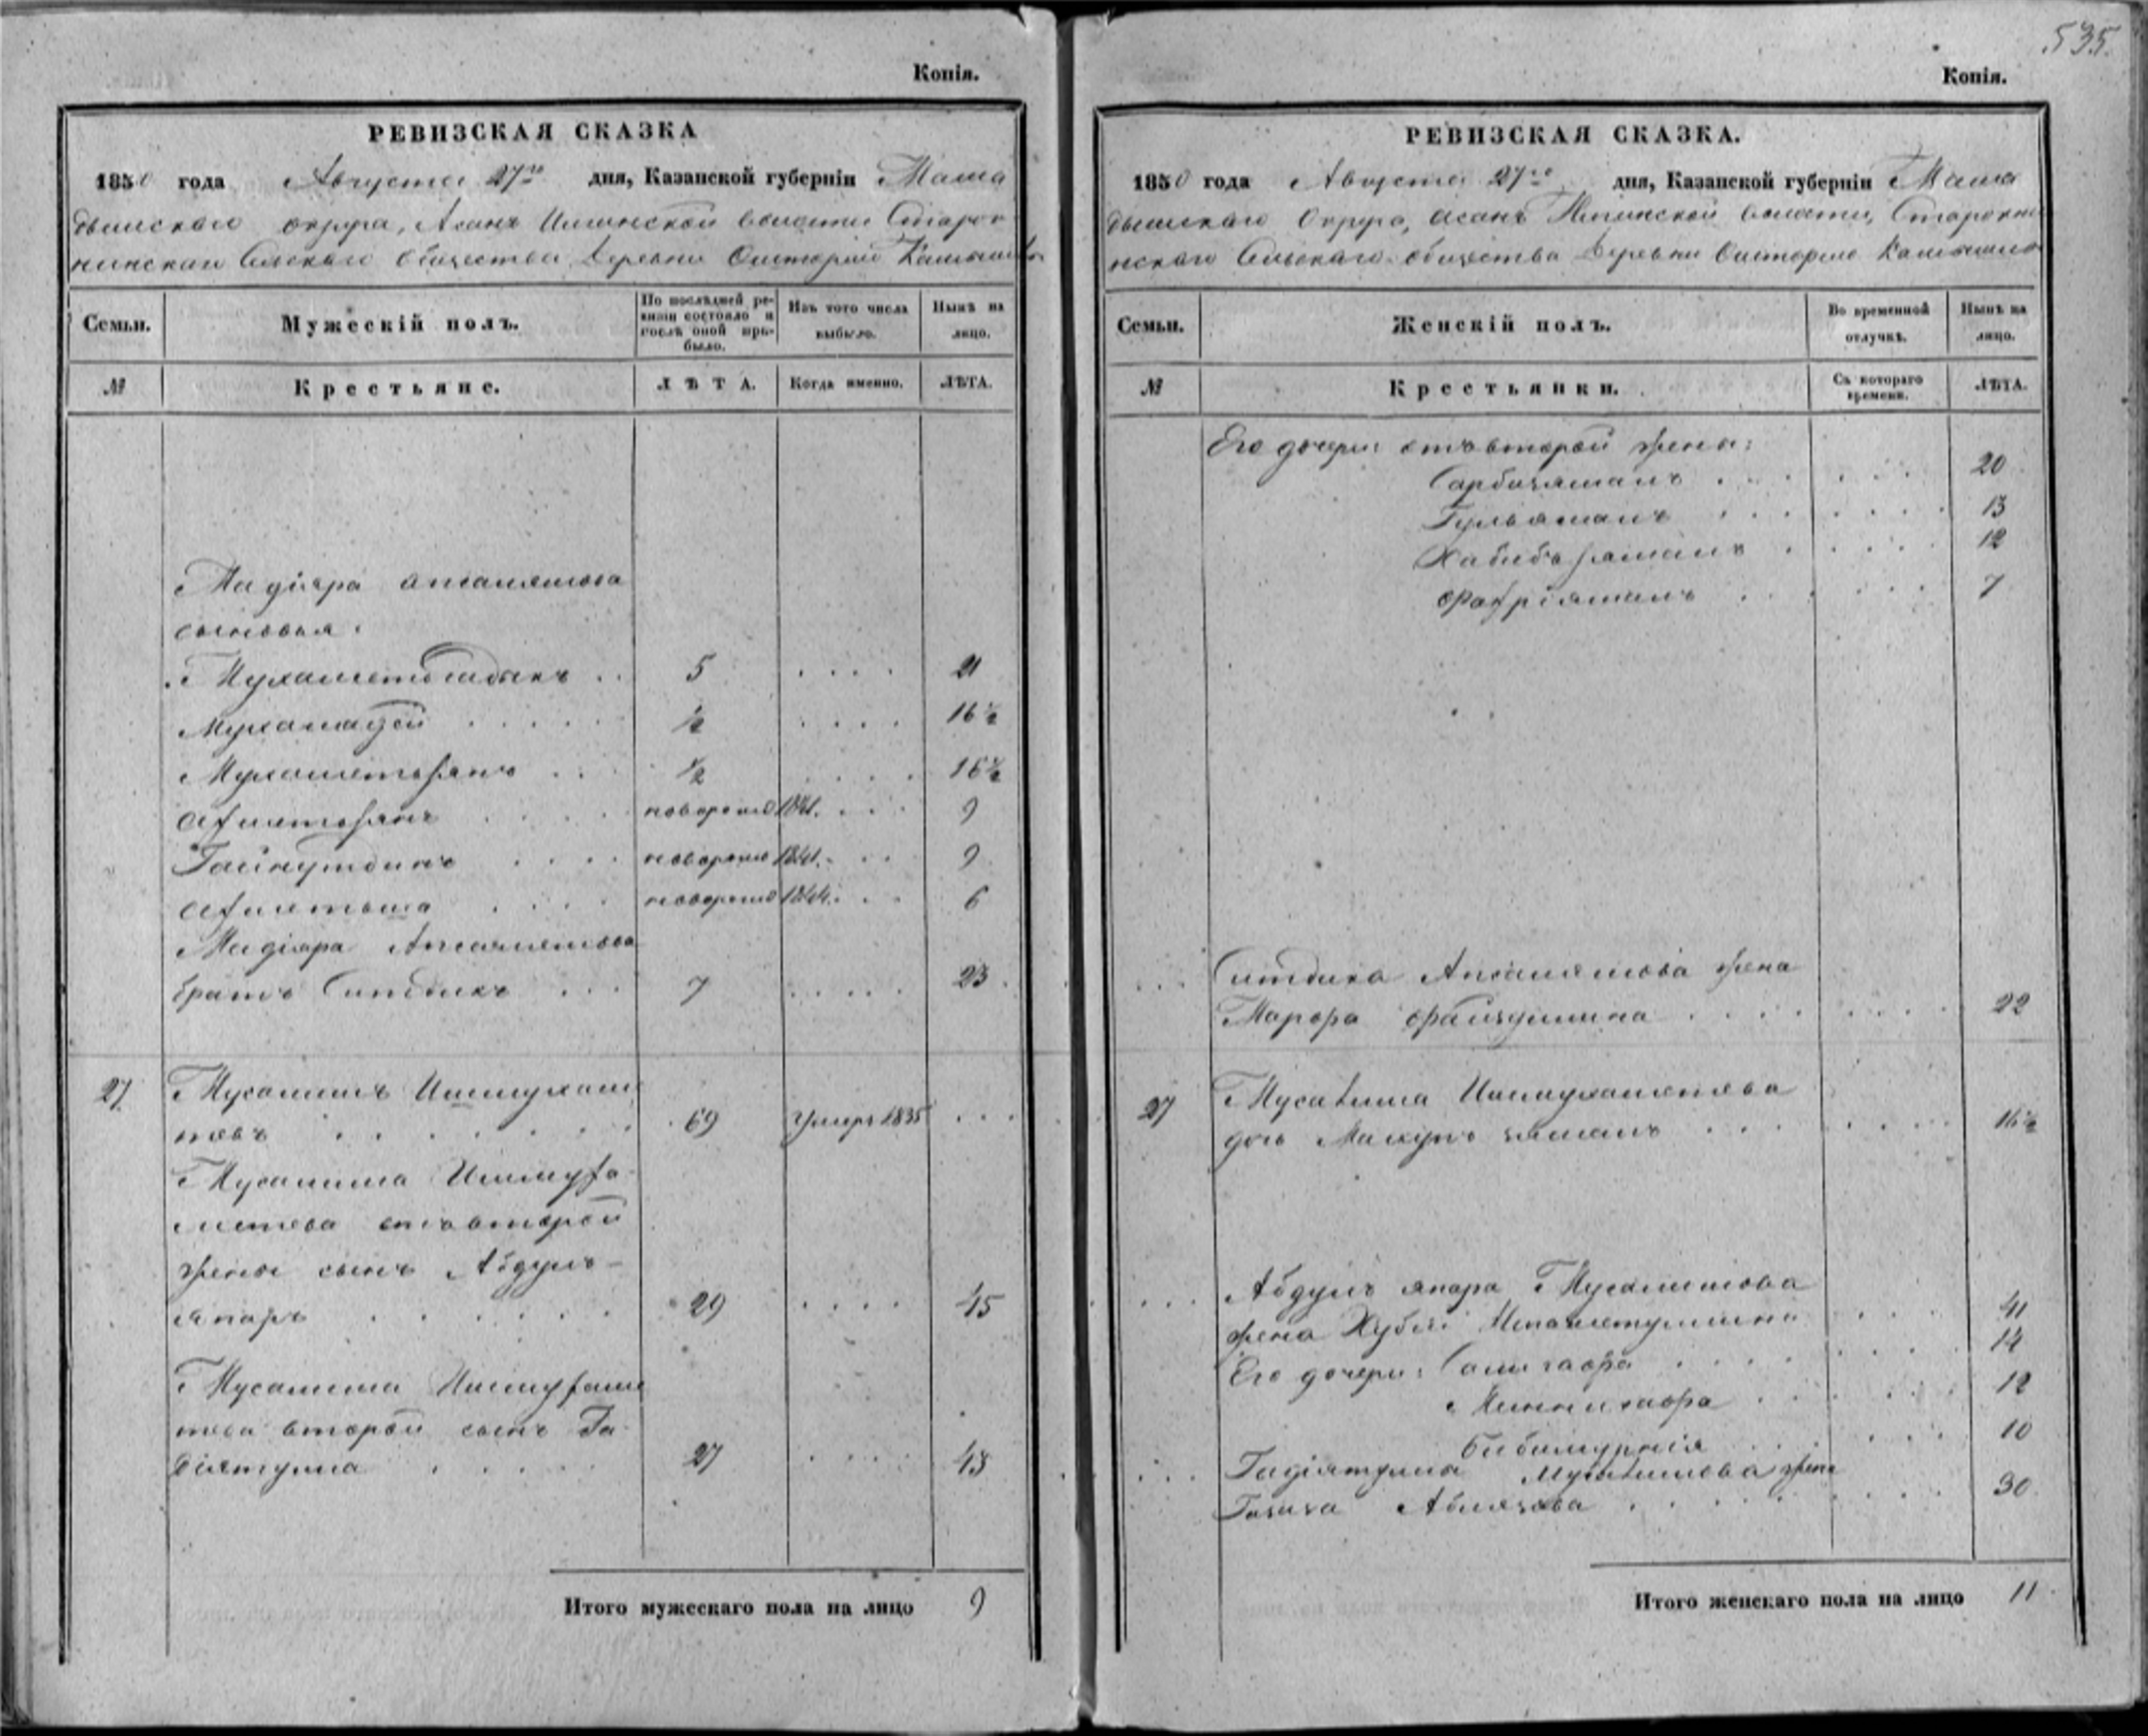 535.
Копія.
РЕВИЗСКАЯ СКАЗКА
1850 года Августа 27го дня, Казанской губерніи Мама
дышскаго округа, Асанъ Илгинской волости Старок
нинскаго Сельскаго Общества Деревни
Семьи.
Мужескій полъ.
По послѣдней ре-
визіи состояло и
послѣ оной при-
было.
Изъ того числа
выбыло.
Нынѣ на
лицо.
№
Крестьяне.
ЛѢТА.
Когда именно.
ЛѢТА.
Мадіяра Апсалямова
сыновья:
Мухаметьсадыкъ . . 5 . . . . 21
Мухамадей . . . . ½ . . . . 16½
Мухаметьжанъ . . . ½ . . . . 16½
Ахметьжанъ . . . . новорожд 1841. . . . 9
Гайнутдинъ . . . . новорожд 1841. . . . 9
Ахметьша . . . . новорожд 1844. . . . 6
Мадіяра Апсалямова
братъ Ситдикъ . . . 7 . . . . . 23
27 Мусалимъ Ишмухаме
товъ . . . . . . . 69 Умеръ 1835 . . .
Мусалима Ишмуха-
метова отъ второй
жены сынъ Абдулъ-
япаръ . . . . . . 29 . . . . 45
Мусалима Ишмухаме
това второй сынъ Га-
діятулла . . . . . 27 . . . . 43
Итого мужескаго пола на лицо 9
Копія.
РЕВИЗСКАЯ СКАЗКА.
1850 года Августа 27го дня, Казанской губерніи Мама
дышскаго Округа, Асанъ Илгинской волости, Старокни
нскаго Сельскаго Общества Деревни
Семьи.
Женскій полъ.
Во временной
отлучкѣ.
Нынѣ на
лицо.
№
Крестьянки.
Съ котораго
времени.
ЛѢТА.
Его дочери отъ второй жены:
Сарбизяманъ . . . . . . 20
Гульзяманъ . . . . . . 13
Хабибъзяманъ . . . . . 12
Фахріяманъ . . . . . . 7
Ситдика Апсалямова жена
Марфа . . . . . . . . 22
27 Мусалима Ишмухаметова
дочь . . . . . . . 16½
Абдулъ япара Мусалимова
жена . . . . . 41
Его дочери: . . . . . . 14
. . . . . 12
. . . . . 10
Гадіятулла Мусалимова жена
Газиза Аблязова . . . . . . 30
Итого женскаго пола на лицо 11